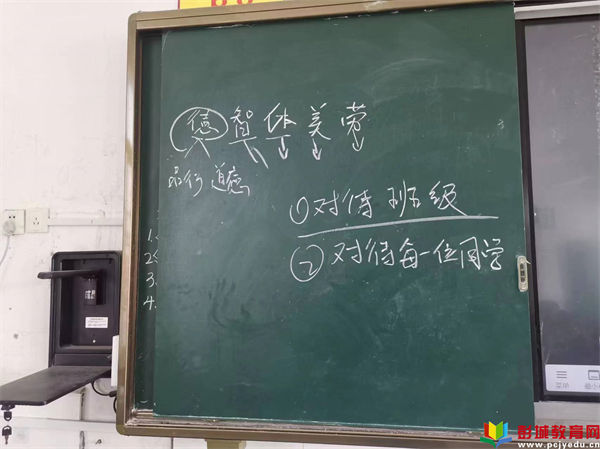 德智体美劳
品行 道德
①对待班级
②对待每一位同学
1.
2.
3.
4.
菜单
彭城教育网
www.pcjyedu.cn